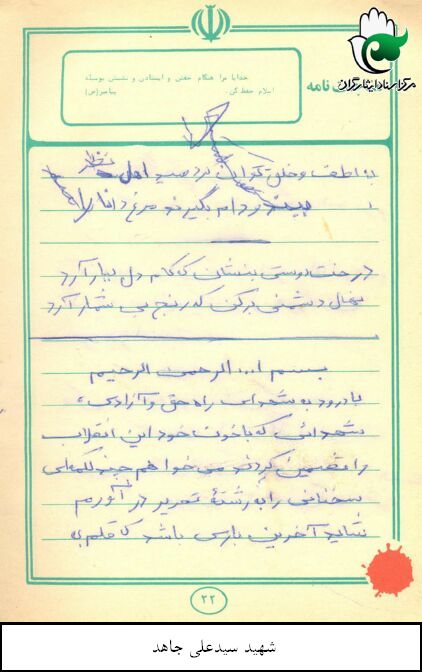 مرکز اسناد ایثارگران
نامه
خدایا مرا هنگام خفتن و ایستادن و نشستن بوسیله
اسلام حفظ کن.
پیامبر(ص)
به لطف و خلق توان کرد صید اهل نظر
به بند و دام نگیرند مرغ دانا را
درخت دوستی بنشان که کام دل ببار آرد
نهال دشمنی برکن که رنج بی شمار آرد
بسم ا... الرحمن الرحیم
با درود به شهدای راه حق و آزادی،
شهدائی که با خون خود این انقلاب
را تضمین کردند می خواهم چند کلمه‌ای
سخنانی را به رشتۀ تحریر در آورم
شاید آخرین باری باشد که قلم به
۲۲
شهید سیدعلی جاهد